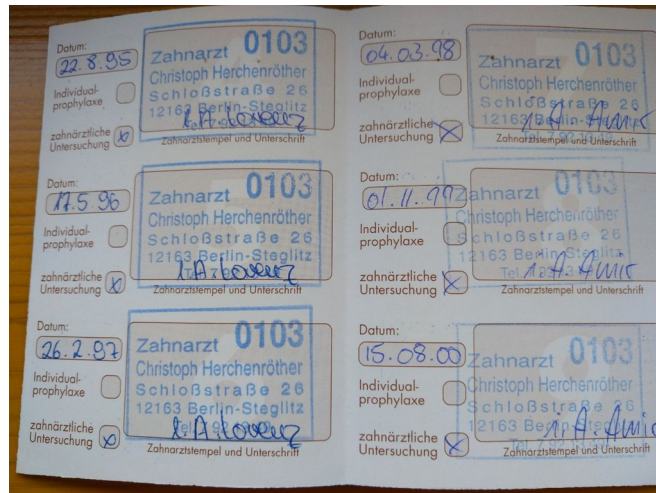 Datum:
22.8.95
Individual-
prophylaxe
zahnärztliche
Untersuchung
Zahnarzt 0103
Christoph Herchenröther
Schloßstraße 26
12163 Berlin-Steglitz
i.A. Lorenz
Zahnarztstempel und Unterschrift
Datum:
17.5.96
Individual-
prophylaxe
zahnärztliche
Untersuchung
Zahnarzt 0103
Christoph Herchenröther
Schloßstraße 26
12163 Berlin-Steglitz
i.A. Lorenz
Zahnarztstempel und Unterschrift
Datum:
26.2.97
Individual-
prophylaxe
zahnärztliche
Untersuchung
Zahnarzt 0103
Christoph Herchenröther
Schloßstraße 26
12163 Berlin-Steglitz
i.A. Lorenz
Zahnarztstempel und Unterschrift
Datum:
04.03.98
Individual-
prophylaxe
zahnärztliche
Untersuchung
Zahnarzt 0103
Christoph Herchenröther
Schloßstraße 26
12163 Berlin-Steglitz
i.A. Amir
Zahnarztstempel und Unterschrift
Datum:
01.11.99
Individual-
prophylaxe
zahnärztliche
Untersuchung
Zahnarzt 0103
Christoph Herchenröther
Schloßstraße 26
12163 Berlin-Steglitz
i.A. Amir
Zahnarztstempel und Unterschrift
Datum:
15.08.00
Individual-
prophylaxe
zahnärztliche
Untersuchung
Zahnarzt 0103
Christoph Herchenröther
Schloßstraße 26
12163 Berlin-Steglitz
i.A. Amir
Zahnarztstempel und Unterschrift